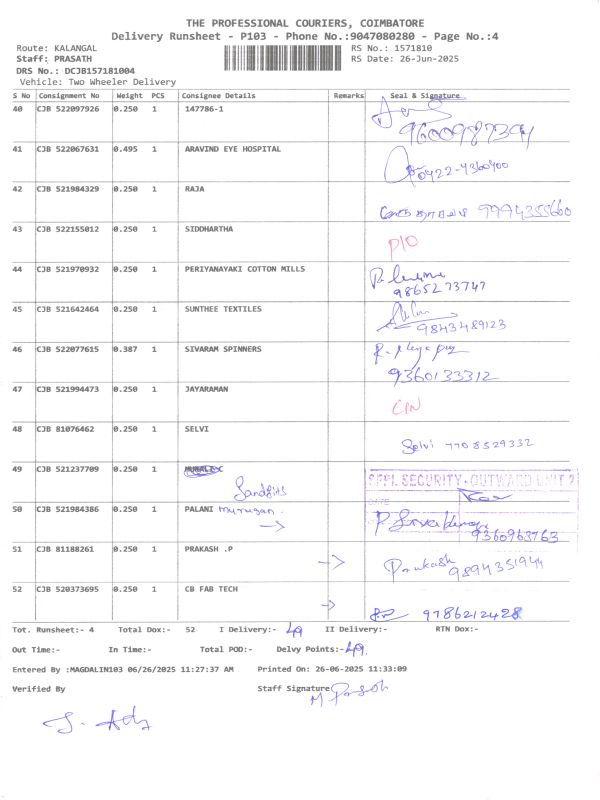 THE PROFESSIONAL COURIERS, COIMBATORE
Delivery Runsheet - P103 - Phone No.:9047080280 - Page No.:4
Route: KALANGAL RS No.: 1571810
Staff: PRASATH RS Date: 26-Jun-2025
DRS No.: DCJB157181004
Vehicle: Two Wheeler Delivery
S No Consignment No Weight PCS Consignee Details Remarks Seal & Signature
40 CJB 522097926 0.250 1 147786-1
9600987394
41 CJB 522067631 0.495 1 ARAVIND EYE HOSPITAL
0422-4360400
42 CJB 521984329 0.250 1 RAJA
9994355660
43 CJB 522155012 0.250 1 SIDDHARTHA
P/O
44 CJB 521970932 0.250 1 PERIYANAYAKI COTTON MILLS
9865273747
45 CJB 521642464 0.250 1 SUNTHEE TEXTILES
9843489123
46 CJB 522077615 0.387 1 SIVARAM SPINNERS
9360133312
47 CJB 521994473 0.250 1 JAYARAMAN
CPN
48 CJB 81076462 0.250 1 SELVI
Selvi 7708529332
49 CJB 521237709 0.250 1
SECURITY - OUTWARD UNIT
DATE
50 CJB 521984386 0.250 1 PALANI murugan.
9360963763
51 CJB 81188261 0.250 1 PRAKASH .P
Prakash 9894351944
52 CJB 520373695 0.250 1 CB FAB TECH
9786212428
Tot. Runsheet:- 4 Total Dox:- 52 I Delivery:- 49 II Delivery:- RTN Dox:-
Out Time:- In Time:- Total POD:- Delvy Points:- 49
Entered By :MAGDALIN103 06/26/2025 11:27:37 AM Printed On: 26-06-2025 11:33:09
Verified By Staff Signature